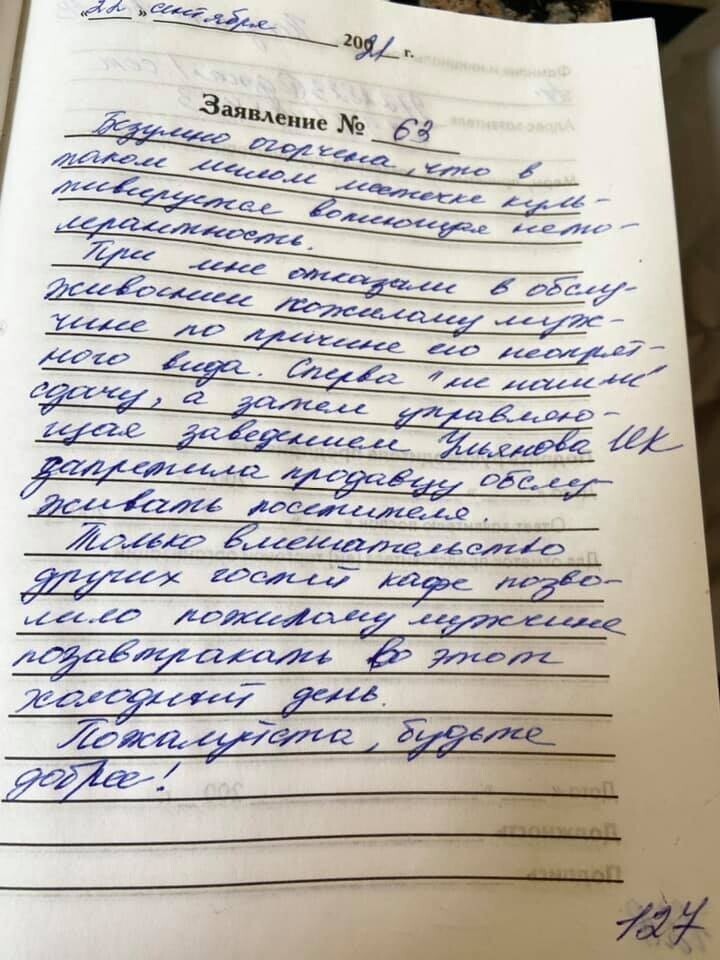 «22» сентября 2021 г.
Заявление № 63
Безумно огорчена, что в
таком милом местечке куль-
тивируется вопиющая нето-
лерантность.
При мне отказали в обслу-
живании пожилому муж-
чине по причине его неопрят-
ного вида. Сперва "не нашли"
сдачу, а затем управляю-
щая заведением Ульянова ИК
запретила продавцу обслу
живать посетителя
Только вмешательство
других гостей кафе позво-
лило пожилому мужчине
позавтракать в этот
холодный день.
Пожалуйста, будьте
добрее!
Должность
Подпись
127